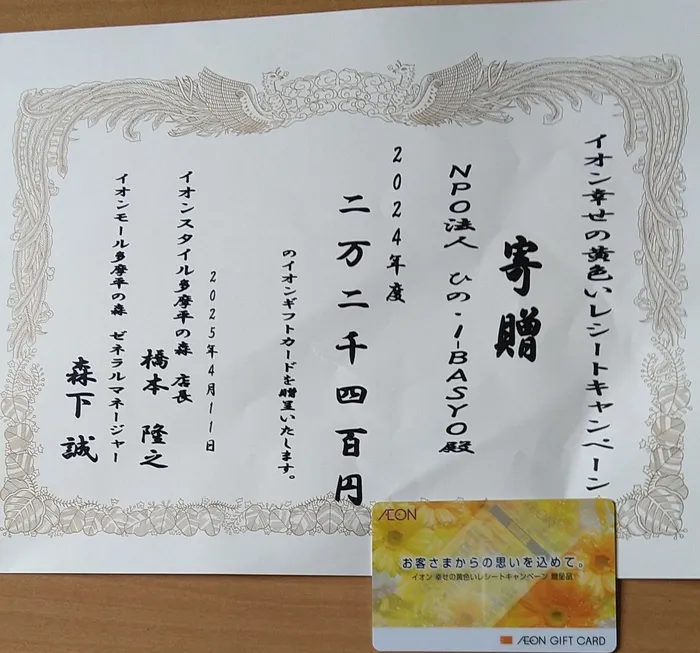 イオン幸せの黄色いレシートキャンペーン
寄贈
NPO法人 ひの・I-BASYO殿
2024年度
二万二千四百円
のイオンギフトカードを贈呈いたします。
2025年4月11日
イオンスタイル多摩平の森 店長
橋本 隆之
イオンモール多摩平の森 ゼネラルマネージャー
森下 誠
ÆON
お客さまからの思いを込めて。
イオン 幸せの黄色いレシートキャンペーン 贈呈品
ÆON GIFT CARD